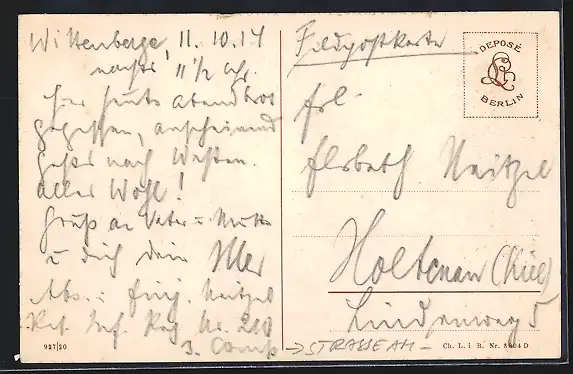 Wittenberge, 11.10.14
nachts 11 1/2 Uhr.
Hier heute Abendbrot
gegessen, anscheinend
geht's nach Westen.
Alles Wohl!
Gruß an Vater u. Mutter
u. dich dein
Abs.: Neitzel
Res. Inf. Reg. Nr. 210
3. Comp
927/20
Feldpostkarte
DEPOSÉ
BERLIN
Frl.
Elsbeth Neitzel
Holtenau (Kiel)
Lindenweg 5
→ STRASSE AM –
Ch. L. i B. Nr. 5804 D